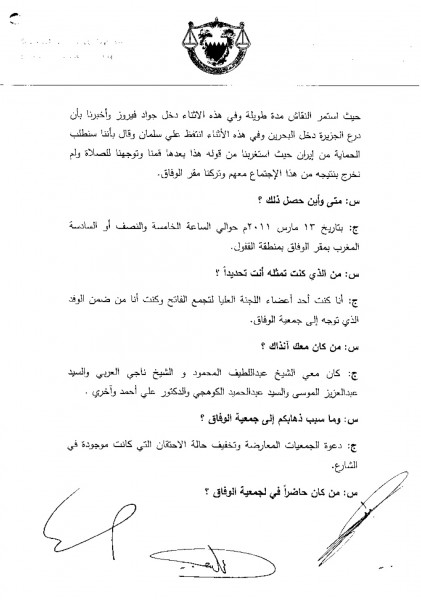 حيث استمر النقاش مدة طويلة وفي هذه الاثناء دخل جواد فيروز وأخبرنا بأن
درع الجزيرة دخل البحرين وفي هذه الأثناء انتفظ علي سلمان وقال بأننا سنطلب
الحماية من إيران حيث استغربنا من قوله هذا بعدها قمنا وتوجهنا للصلاة ولم
نخرج بنتيجه من هذا الإجتماع معهم وتركنا مقر الوفاق.
س: متى وأين حصل ذلك ؟
ج: بتاريخ ١٣ مارس ٢٠١١م حوالي الساعة الخامسة والنصف أو السادسة
المغرب بمقر الوفاق بمنطقة القفول.
س: من الذي كنت تمثله أنت تحديداً ؟
ج: أنا كنت أحد أعضاء اللجنة العليا لتجمع الفاتح وكنت أنا من ضمن الوفد
الذي توجه إلى جمعية الوفاق.
س: من كان معك آنذاك ؟
ج: كان معي الشيخ عبداللطيف المحمود و الشيخ ناجي العربي والسيد
عبدالعزيز الموسى والسيد عبدالحميد الكوهجي والدكتور علي أحمد وآخري .
س: وما سبب ذهابكم إلى جمعية الوفاق ؟
ج: دعوة الجمعيات المعارضة وتخفيف حالة الاحتقان التي كانت موجودة في
الشارع.
س: من كان حاضراً في لجمعية الوفاق ؟